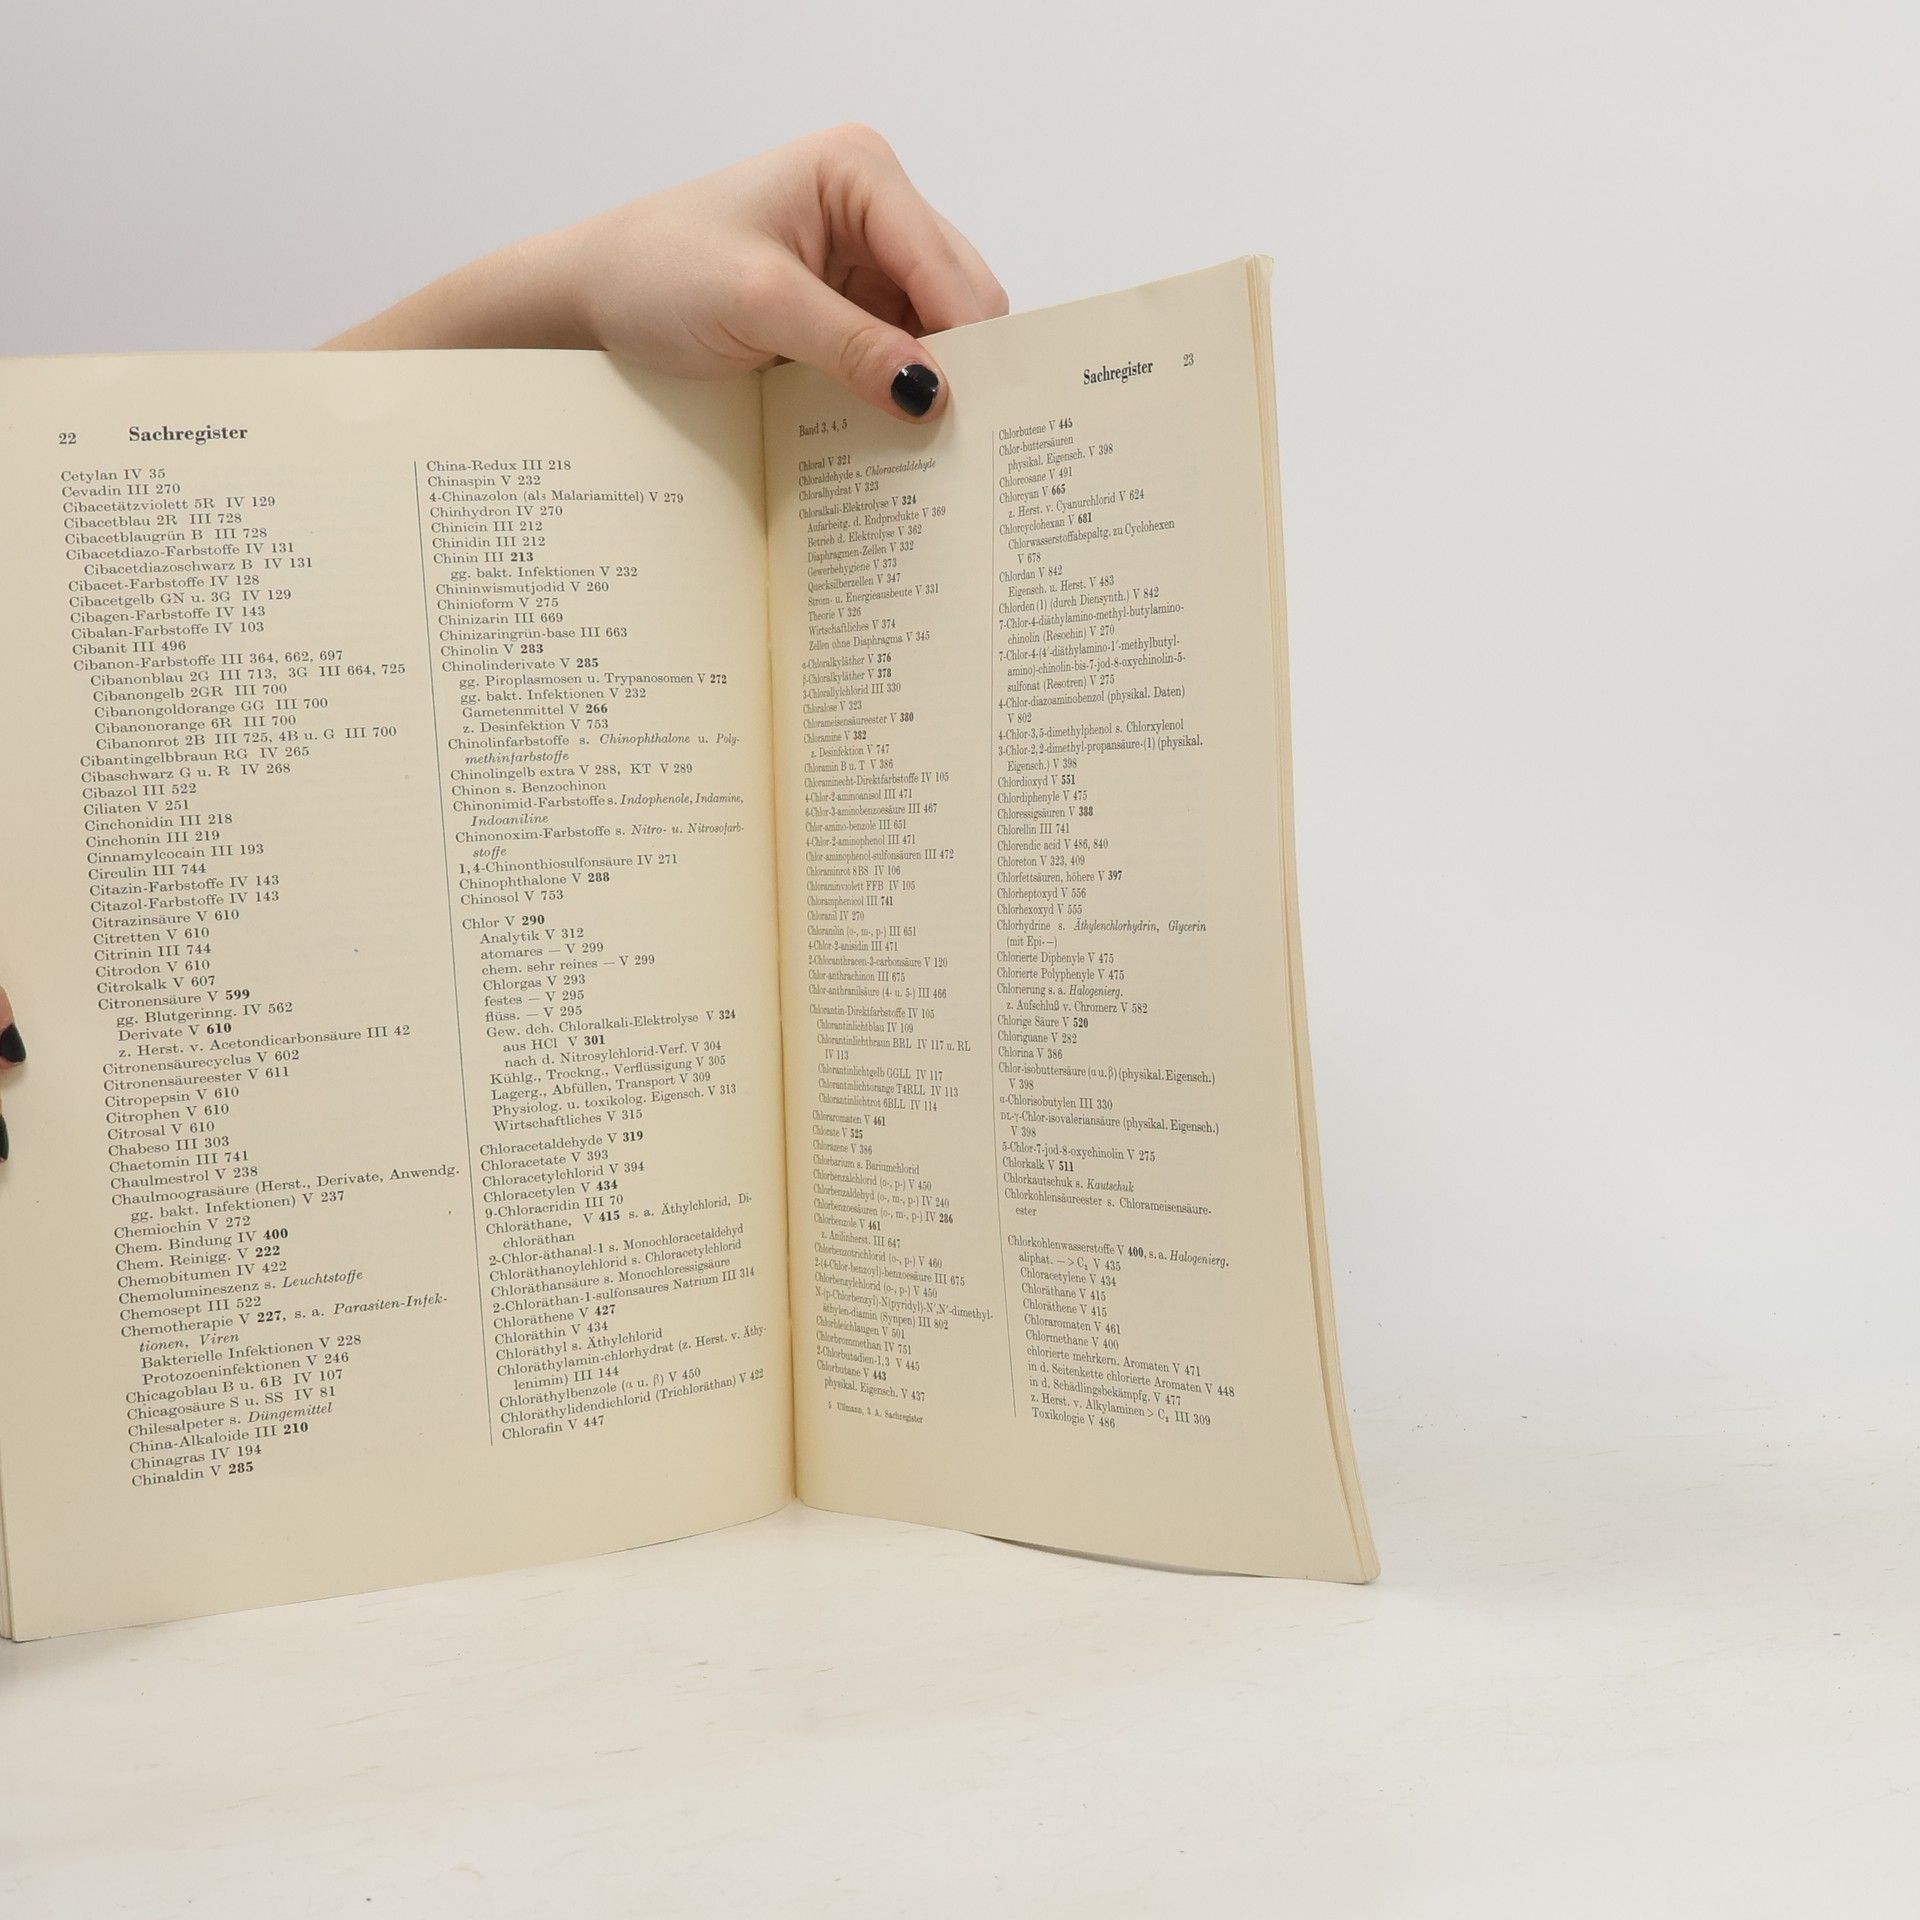 22 Sachregister
Cetylan IV 35
Cevadin III 270
Cibacetätzviolett 5R IV 129
Cibacetblau 2R III 728
Cibacetblaugrün B III 728
Cibacetdiazo-Farbstoffe IV 131
Cibacetdiazoschwarz B IV 131
Cibacet-Farbstoffe IV 128
Cibacetgelb GN u. 3G IV 129
Cibagen-Farbstoffe IV 143
Cibalan-Farbstoffe IV 103
Cibanit III 496
Cibanon-Farbstoffe III 364, 662, 697
Cibanonblau 2G III 713, 3G III 664, 725
Cibanongelb 2GR III 700
Cibanongoldorange GG III 700
Cibanonorange 6R III 700
Cibanonrot 2B III 725, 4B u. G III 700
Cibantingelbbraun RG IV 265
Cibaschwarz G u. R IV 268
Cibazol III 522
Ciliaten V 251
Cinchonidin III 218
Cinchonin III 219
Cinnamylcocain III 193
Circulin III 744
Citazin-Farbstoffe IV 143
Citazol-Farbstoffe IV 143
Citrazinsäure V 610
Citretten V 610
Citrinin III 744
Citrodon V 610
Citrokalk V 607
Citronensäure V 599
gg. Blutgerinng. IV 562
Derivate V 610
z. Herst. v. Acetondicarbonsäure III 42
Citronensäurecyclus V 602
Citronensäureester V 611
Citropepsin V 610
Citrophen V 610
Citrosal V 610
Chabeso III 303
Chaetomin III 741
Chaulmestrol V 238
Chaulmoograsäure (Herst., Derivate, Anwendg.
gg. bakt. Infektionen) V 237
Chemiochin V 272
Chem. Bindung IV 400
Chem. Reinigg. V 222
Chemobitumen IV 422
Chemolumineszenz s. Leuchtstoffe
Chemosept III 522
Chemotherapie V 227, s. a. Parasiten-Infek-
tionen, Viren
Bakterielle Infektionen V 228
Protozoeninfektionen V 246
Chicagoblau B u. 6B IV 107
Chicagosäure S u. SS IV 81
Chilesalpeter s. Düngemittel
China-Alkaloide III 210
Chinagras IV 194
Chinaldin V 285
China-Redux III 218
Chinaspin V 232
4-Chinazolon (als Malariamittel) V 279
Chinhydron IV 270
Chinicin III 212
Chinidin III 212
Chinin III 213
gg. bakt. Infektionen V 232
Chininwismutjodid V 260
Chinioform V 275
Chinizarin III 669
Chinizaringrün-base III 663
Chinolin V 283
Chinolinderivate V 285
gg. Piroplasmosen u. Trypanosomen V 272
gg. bakt. Infektionen V 232
Gametenmittel V 266
z. Desinfektion V 753
Chinolinfarbstoffe s. Chinophthalone u. Poly-
methinfarbstoffe
Chinolingelb extra V 288, KT V 289
Chinon s. Benzochinon
Chinonimid-Farbstoffe s. Indophenole, Indamine,
Indoaniline
Chinonoxim-Farbstoffe s. Nitro- u. Nitrosofarb-
stoffe
1,4-Chinonthiosulfonsäure IV 271
Chinophthalone V 288
Chinosol V 753
Chlor V 290
Analytik V 312
atomares — V 299
chem. sehr reines — V 299
Chlorgas V 293
festes — V 295
flüss. — V 295
Gew. dch. Chloralkali-Elektrolyse V 324
aus HCl V 301
nach d. Nitrosylchlorid-Verf. V 304
Kühlg., Trockng., Verflüssigung V 305
Lagerg., Abfüllen, Transport V 309
Physiolog. u. toxikolog. Eigensch. V 313
Wirtschaftliches V 315
Chloracetaldehyde V 319
Chloracetate V 393
Chloracetylchlorid V 394
Chloracetylen V 434
9-Chloracridin III 70
Chloräthane, V 415 s. a. Äthylchlorid, Di-
chloräthan
2-Chlor-äthanal-1 s. Monochloracetaldehyd
Chloräthanoylchlorid s. Chloracetylchlorid
Chloräthansäure s. Monochloressigsäure
2-Chloräthan-1-sulfonsaures Natrium III 314
Chloräthene V 427
Chloräthin V 434
Chloräthyl s. Äthylchlorid
Chloräthylamin-chlorhydrat (z. Herst. v. Äthy-
lenimin) III 144
Chloräthylbenzole (α u. β) V 450
Chloräthylidendichlorid (Trichloräthan) V 422
Chlorafin V 447
Sachregister 23
Band 3, 4, 5
Chloral V 321
Chloraldehyde s. Chloracetaldehyde
Chloralhydrat V 323
Chloralkali-Elektrolyse V 324
Aufarbeitg. d. Endprodukte V 369
Betrieb d. Elektrolyse V 362
Diaphragmen-Zellen V 332
Gewerbehygiene V 373
Quecksilberzellen V 347
Strom- u. Energieausbeute V 331
Theorie V 326
Wirtschaftliches V 374
Zellen ohne Diaphragma V 345
α-Chloralkyläther V 376
β-Chloralkyläther V 378
3-Chlorallylchlorid III 330
Chloralose V 323
Chlorameisensäureester V 380
Chloramine V 382
z. Desinfektion V 747
Chloramin B u. T V 386
Chloraminecht-Direktfarbstoffe IV 105
4-Chlor-2-aminoanisol III 471
6-Chlor-3-aminobenzoesäure III 467
Chlor-amino-benzole III 651
4-Chlor-2-aminophenol III 471
Chlor-aminophenol-sulfonsäuren III 472
Chloraminrot 8BS IV 106
Chloraminviolett FFB IV 105
Chloramphenicol III 741
Chloranil IV 270
Chloranilin (o-, m-, p-) III 651
4-Chlor-2-anisidin III 471
2-Chloranthracen-3-carbonsäure V 120
Chlor-anthrachinon III 675
Chlor-anthranilsäure (4- u. 5-) III 466
Chlorantin-Direktfarbstoffe IV 105
Chlorantinlichtblau IV 109
Chlorantinlichtbraun BRL IV 117 u. RL
IV 113
Chlorantinlichtgelb GGLL IV 117
Chlorantinlichtorange T4RLL IV 113
Chlorantinlichtrot 6BLL IV 114
Chloraromaten V 461
Chlorate V 525
Chlorazene V 386
Chlorbarium s. Bariumchlorid
Chlorbenzalchlorid (o-, p-) V 450
Chlorbenzaldehyd (o-, m-, p-) IV 240
Chlorbenzoesäuren (o-, m-, p-) IV 286
Chlorbenzole V 461
z. Anilinherst. III 647
Chlorbenzotrichlorid (o-, p-) V 460
2-(4-Chlor-benzoyl)-benzoesäure III 675
Chlorbenzylchlorid (o-, p-) V 450
N-(p-Chlorbenzyl)-N(pyridyl)-N′,N′-dimethyl-
äthylen-diamin (Synpen) III 802
Chlorbleichlaugen V 501
Chlorbrommethan IV 751
2-Chlorbutadien-1,3 V 445
Chlorbutane V 443
physikal. Eigensch. V 437
5 Ullmann, 3 A. Sachregister
Chlorbutene V 445
Chlor-buttersäuren
physikal. Eigensch. V 398
Chlorcosane V 491
Chlorcyan V 665
z. Herst. v. Cyanurchlorid V 624
Chlorcyclohexan V 681
Chlorwasserstoffabspaltg. zu Cyclohexen
V 678
Chlordan V 842
Eigensch. u. Herst. V 483
Chlorden (1) (durch Diensynth.) V 842
7-Chlor-4-diäthylamino-methyl-butylamino-
chinolin (Resochin) V 270
7-Chlor-4-(4′-diäthylamino-1′-methylbutyl-
amino)-chinolin-bis-7-jod-8-oxychinolin-5-
sulfonat (Resotren) V 275
4-Chlor-diazoaminobenzol (physikal. Daten)
V 802
4-Chlor-3,5-dimethylphenol s. Chlorxylenol
3-Chlor-2,2-dimethyl-propansäure-(1) (physikal.
Eigensch.) V 398
Chlordioxyd V 551
Chlordiphenyle V 475
Chloressigsäuren V 388
Chlorellin III 741
Chlorendic acid V 486, 840
Chloreton V 323, 409
Chlorfettsäuren, höhere V 397
Chlorheptoxyd V 556
Chlorhexoxyd V 555
Chlorhydrine s. Äthylenchlorhydrin, Glycerin
(mit Epi-—)
Chlorierte Diphenyle V 475
Chlorierte Polyphenyle V 475
Chlorierung s. a. Halogenierg.
z. Aufschluß v. Chromerz V 582
Chlorige Säure V 520
Chloriguane V 282
Chlorina V 386
Chlor-isobuttersäure (α u. β) (physikal. Eigensch.)
V 398
α-Chlorisobutylen III 330
DL-γ-Chlor-isovaleriansäure (physikal. Eigensch.)
V 398
5-Chlor-7-jod-8-oxychinolin V 275
Chlorkalk V 511
Chlorkautschuk s. Kautschuk
Chlorkohlensäureester s. Chlorameisensäure-
ester
Chlorkohlenwasserstoffe V 400, s. a. Halogenierg.
aliphat. — > C₂ V 435
Chloracetylene V 434
Chloräthane V 415
Chloräthene V 415
Chloraromaten V 461
Chlormethane V 400
chlorierte mehrkern. Aromaten V 471
in d. Seitenkette chlorierte Aromaten V 448
in d. Schädlingsbekämpfg. V 477
z. Herst. v. Alkylaminen > C₂ III 309
Toxikologie V 486